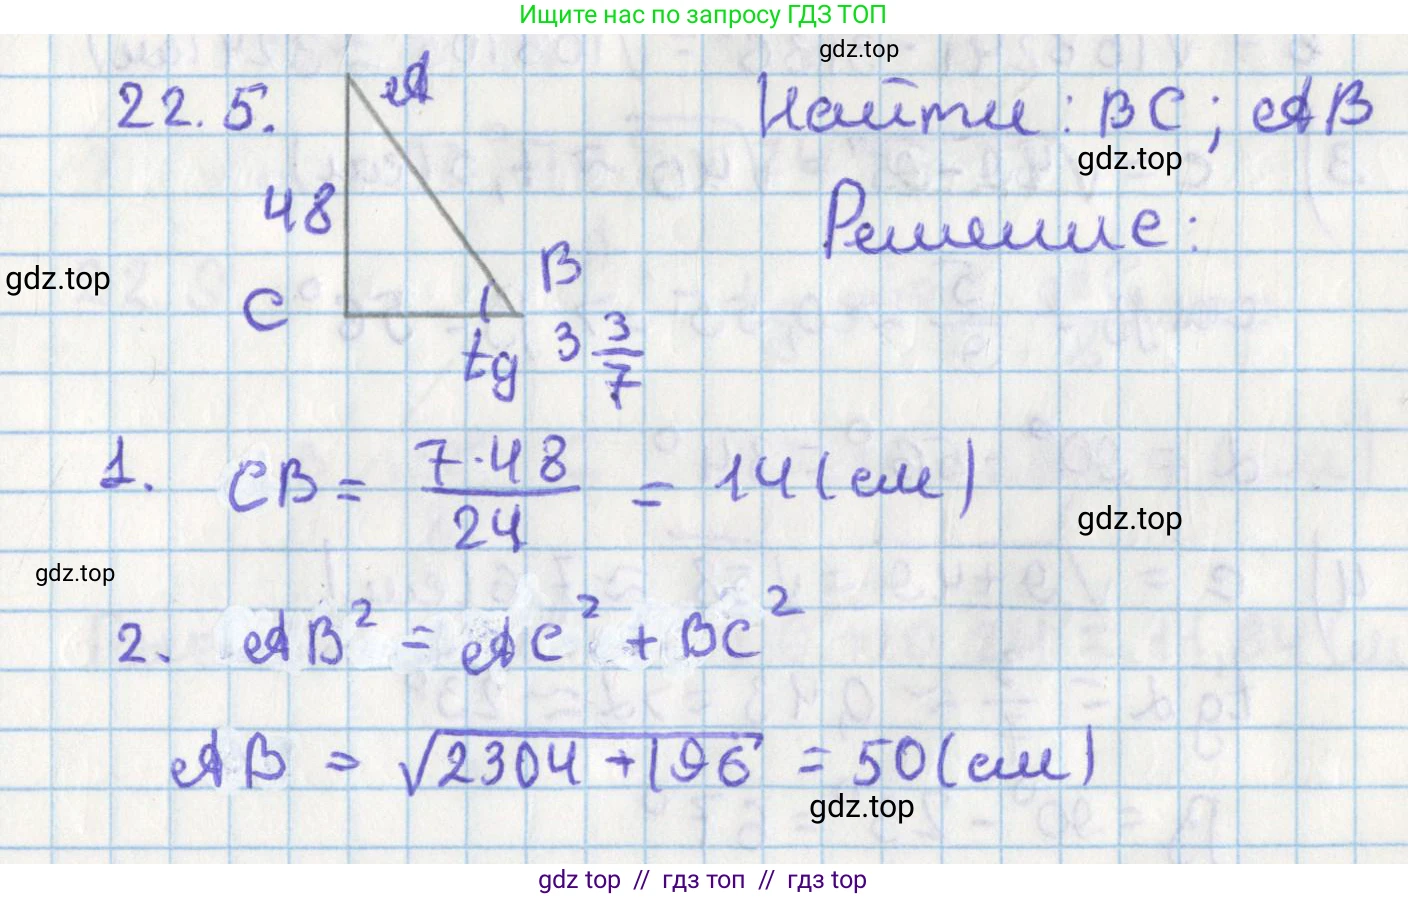 Ищите нас по запросу ГДЗ ТОП
gdz.top
22.5.
A
Найти: BC; AB
gdz.top
48
Решение:
gdz.top
B
C
tg 3 3/7
1. CB = 7·48/24 = 14 (см)
gdz.top
gdz.top
2. AB² = AC² + BC²
AB = √2304 + 196 = 50 (см)
gdz.top
gdz top // гдз топ // гдз top